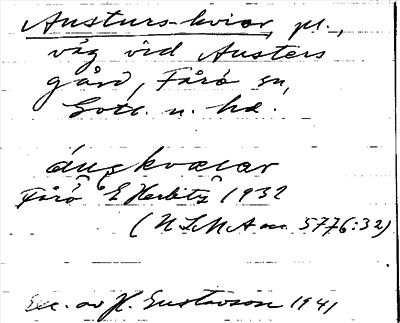 Austurs-kviar, pl.,
väg vid Austers
gård, Fårö sn,
Gotl. n. hd.
Fårö E Herlitz 1932
(NLMA nr. 5776:32)
Exc. av H. Gustavson 1941